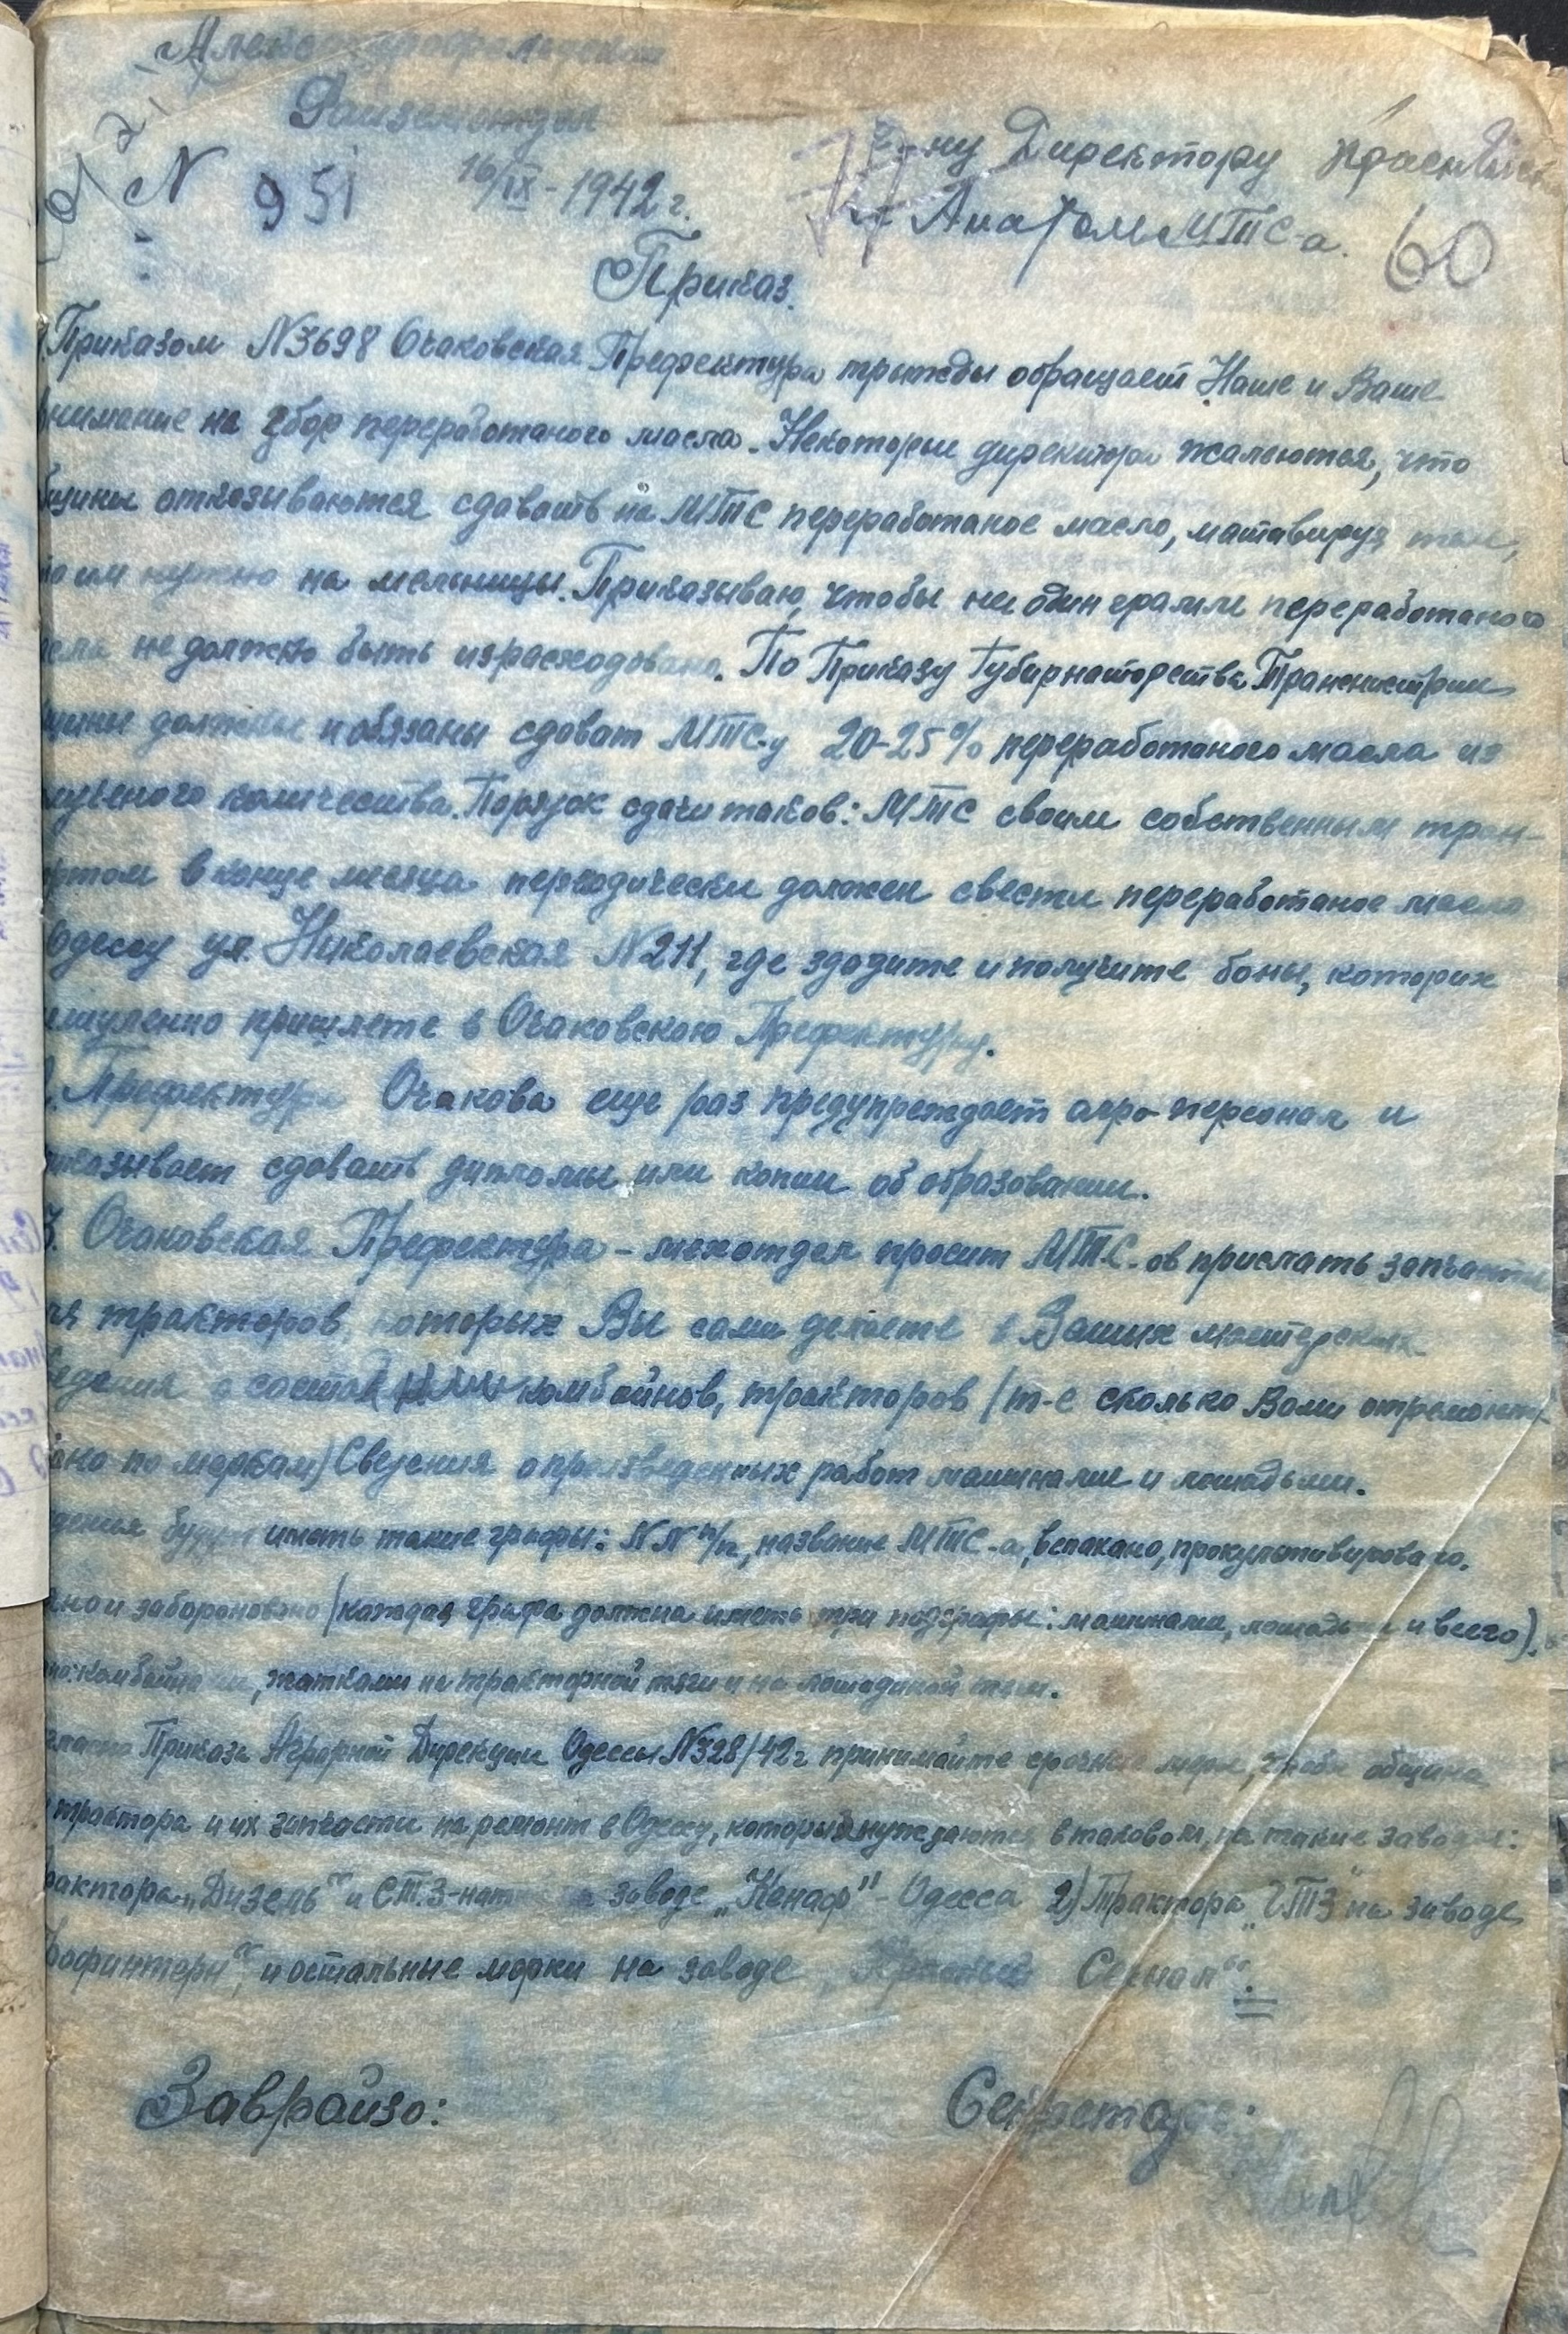 Райземотдел
г-ну Директору
N 951 16/IX - 1942 г.
Анатолье МТС-а. 60
Приказ.
Приказом N3698 Очаковская Префектура трижды обращает Наше и Ваше
внимание на збор переработаного масла. Некоторые директора жалеются, что
общины отказываются сдавать на МТС переработаное масло, мативируя тем,
что им нужно на мельницы. Приказываю, чтобы не один грамм переработаного
масла не должно быть израсходовано. По Приказу Губирнаторства Транснистрии
общины должны и обязаны сдават МТС-у 20-25% переработаного масла из
полученого количества. Порядок сдачи таков: МТС своим собственным тран-
спортом в конце месяца периодически должен свести переработаное масло
Одессу ул. Николаевская N211, где здадите и получите боны, которих
пришлете в Очаковскою Префектуру.
2. Префектура Очакова еще раз предупреждает агро-персонал и
приказывает сдавать дипломы или копии об образовании.
3. Очаковская Префектура - мехотдел просит МТС-ов прислать запчасти
для тракторов, которых Вы сами делаете в Ваших мастерских
комбайнов, тракторов /т-е сколько Вами отремонти-
ровано по маркам) Сведения о произведенных работ машинами и лошадьми.
Сведения будут иметь такие графы: NN п/п, название МТС-а, вспахано, прокультивировано.
и забороновано /каждая графа должна иметь три подграфы: машинами, лошадьми и всего).
комбайнами, жатками на тракторной тяги и на лошадиной тяги.
Согласно Приказа Аграрной Дирекции Одессы N328/42г принимайте срочные меры, чтобы община
трактора и их запчасти на ремонт в Одессу, которые нуждаются в таковом, на такие заводы:
Трактора „Дизель“ и СТЗ-нати на заводе „Канаф" - Одесса 2) Трактора „ХТЗ" на заводе
Профинтерн“, и остальные марки на заводе „Красный Сигнал“.
Заврайзо: Секретарь: